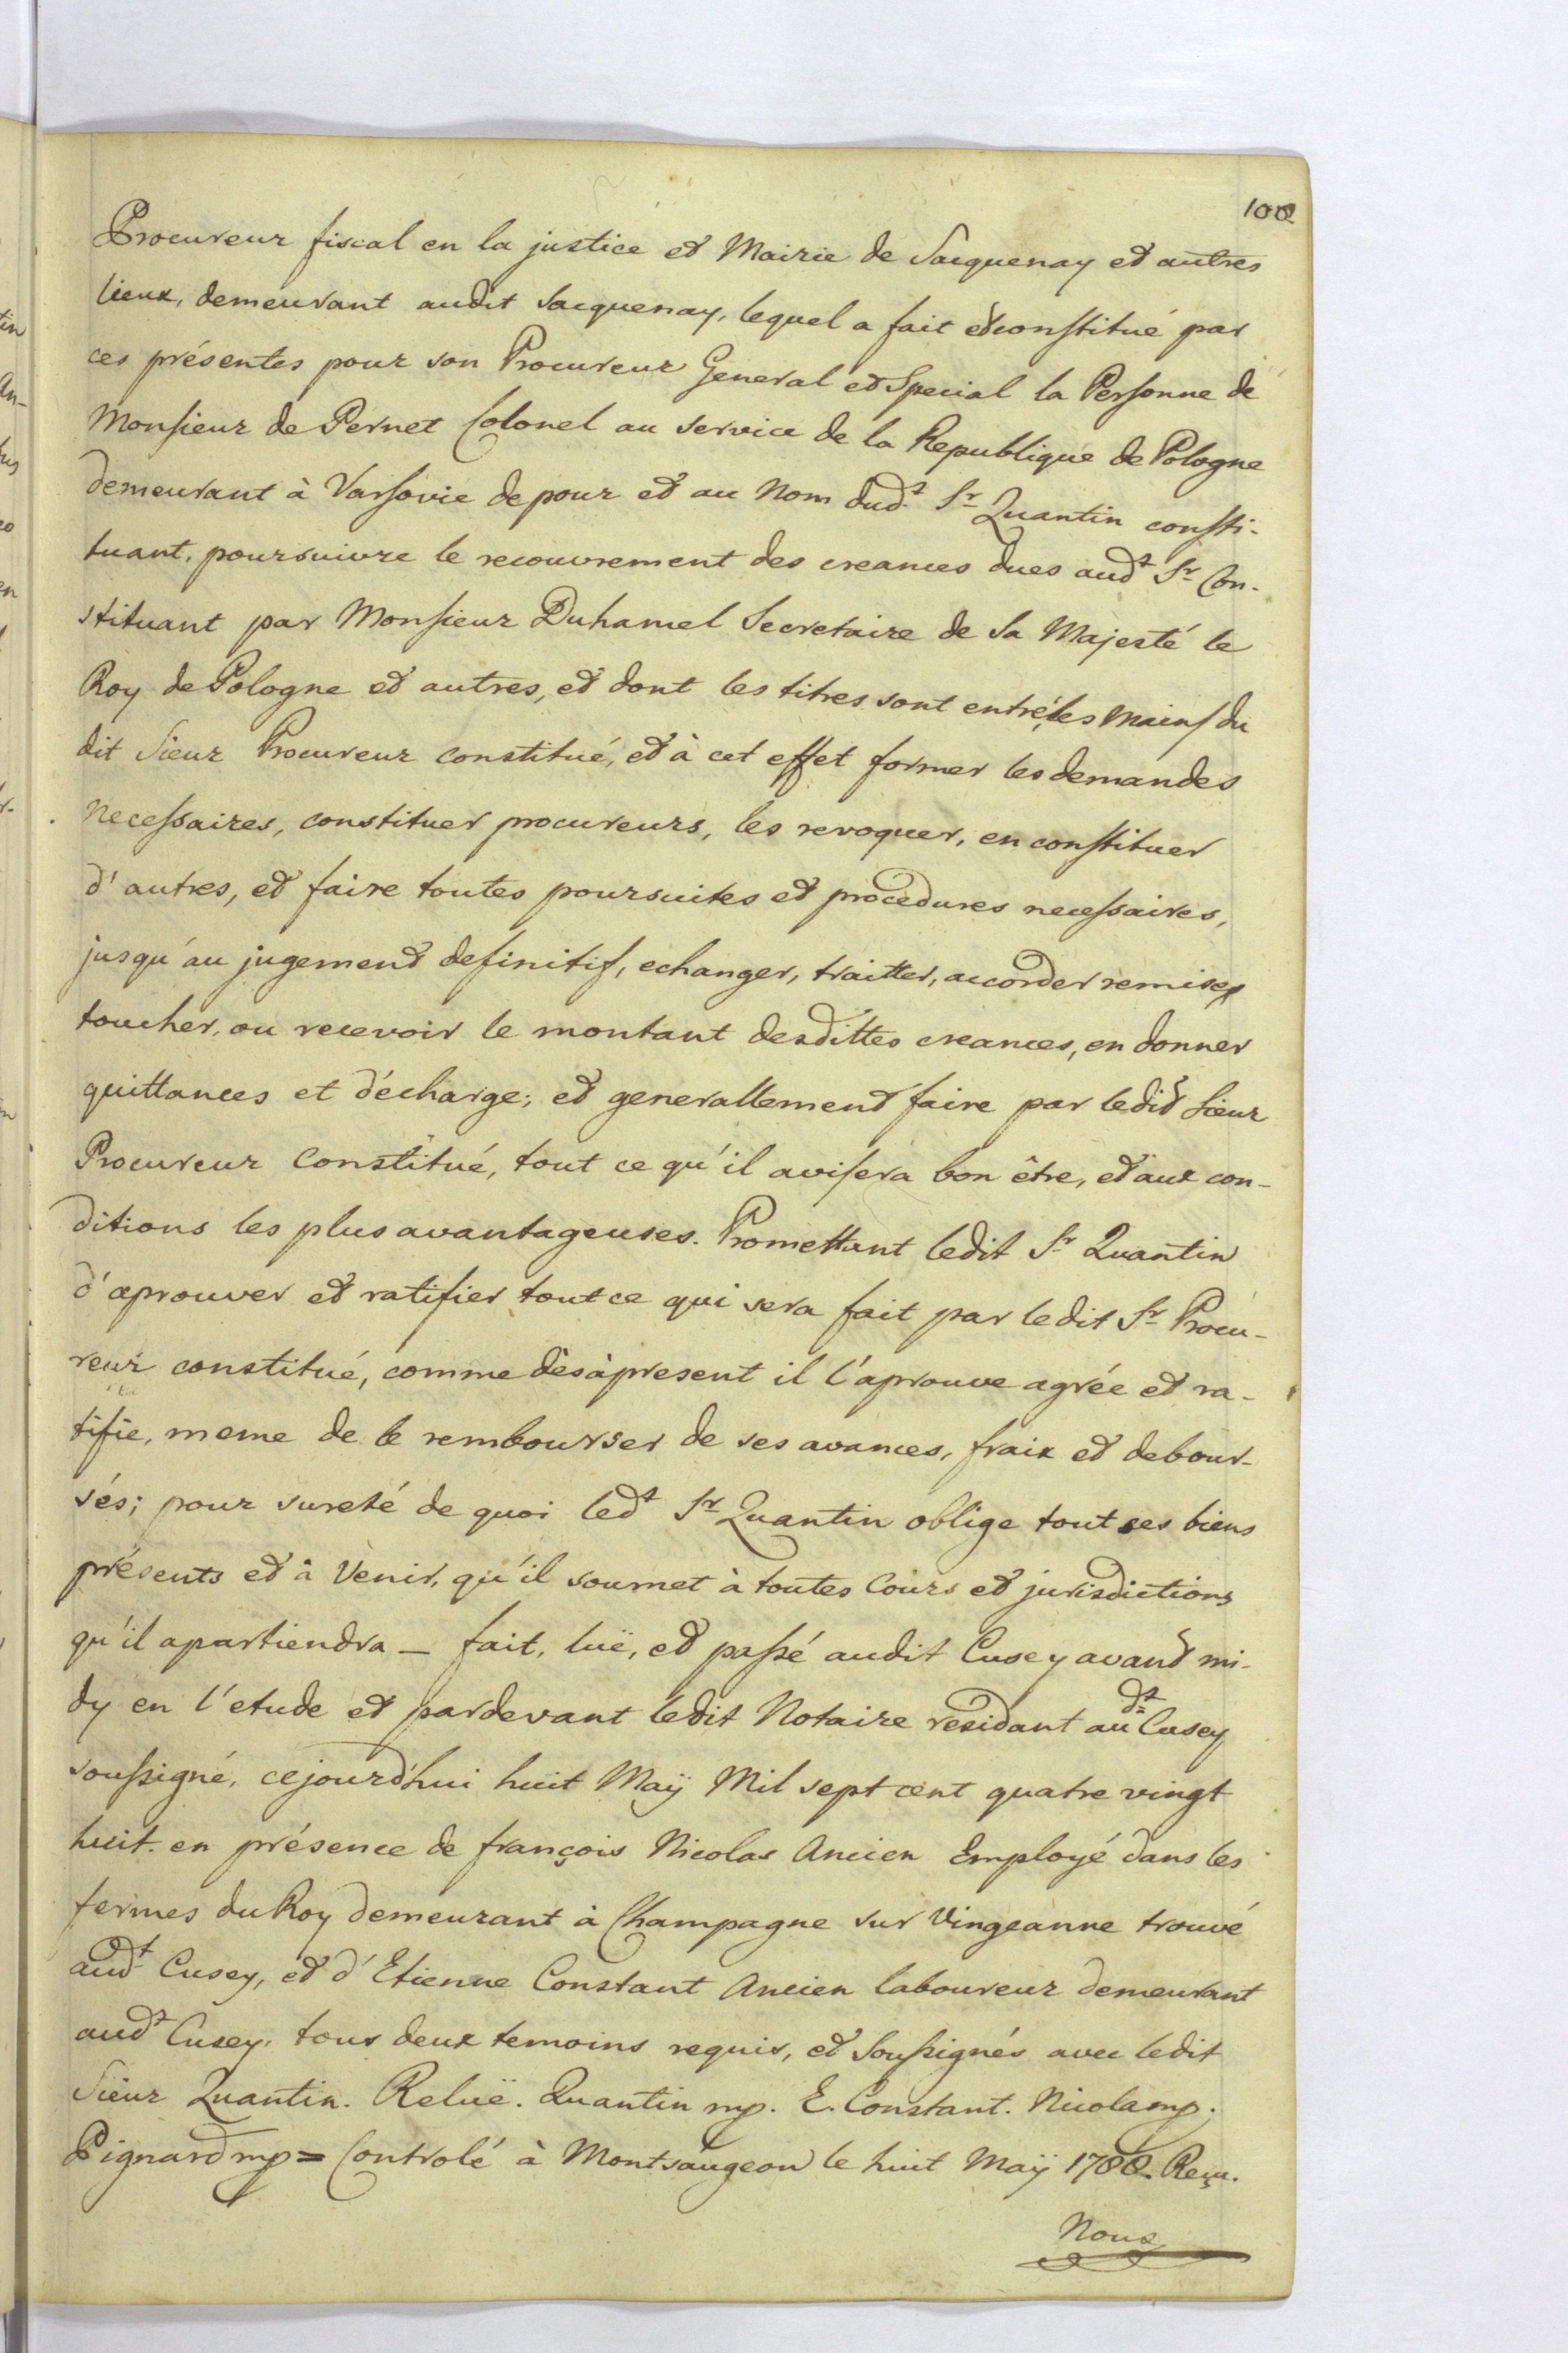 100
Procureur fiscal en la justice et Mairie de Sacquenay et autres
lieux, demeurant audit Sacquenay, lequel a fait et constitué par
ces présentes pour son Procureur General et Special la Personne de
Monsieur de Pernet Colonel au service de la Republique de Pologne
demeurant à Varsovie de pour et au Nom dud.t S.r Quantin consti-
tuant, poursuivre le recouvrement des creances dues aud.t S.r Con-
stituant par Monsieur Duhamel Secretaire de Sa Majesté le
Roy de Pologne et autres, et dont les titres sont entré les Mains du
dit Sieur Procureur constitué, et à cet effet former les demandes
necessaires, constituer procureurs, les revoquer, en constituer
d'autres, et faire toutes poursuites et procedures necessaires,
jusqu'au jugement definitif, echanger, traitter, accorder remises
toucher, ou recevoir le montant desdittes creances, en donner
quittances et décharge; et generallement faire par ledit Sieur
Procureur Constitué, tout ce qu'il avisera bon être, et aux con-
ditions les plus avantageuses. Promettant ledit S.r Quantin
d'aprouver et ratifier tout ce qui sera fait par ledit S.r Procu-
reur constitué, comme dès àpresent il l'aprouve agrée et ra-
tifie, meme de le rembourser de ses avances, fraix et debour-
sés; pour sureté de quoi led.t S.r Quantin oblige tout ses biens
présents et à Venir, qu'il soumet à toutes Cours et jurisdictions
qu'il apartiendra _ fait, luë, et passé audit Cusey avant mi-
dy en l'etude et pardevant ledit Notaire residant aud.t Cusey
soussigné, cejourd'hui huit Maÿ Mil sept cent quatre vingt
huit. en présence de françois Nicolas Ancien Employé dans les
fermes du Roy demeurant à Champagne sur Vingeanne trouvé
aud.t Cusey, et d'Etienne Constant Ancien laboureur demeurant
aud.t Cusey. tous deux temoins requis, et Soussignés avec ledit
Sieur Quantin. Reluë. Quantin mp. E. Constant. Nicola mp.
Pignard mp = Controlé à Montsaugeon le huit Maÿ 1788. Reçu.
Nous